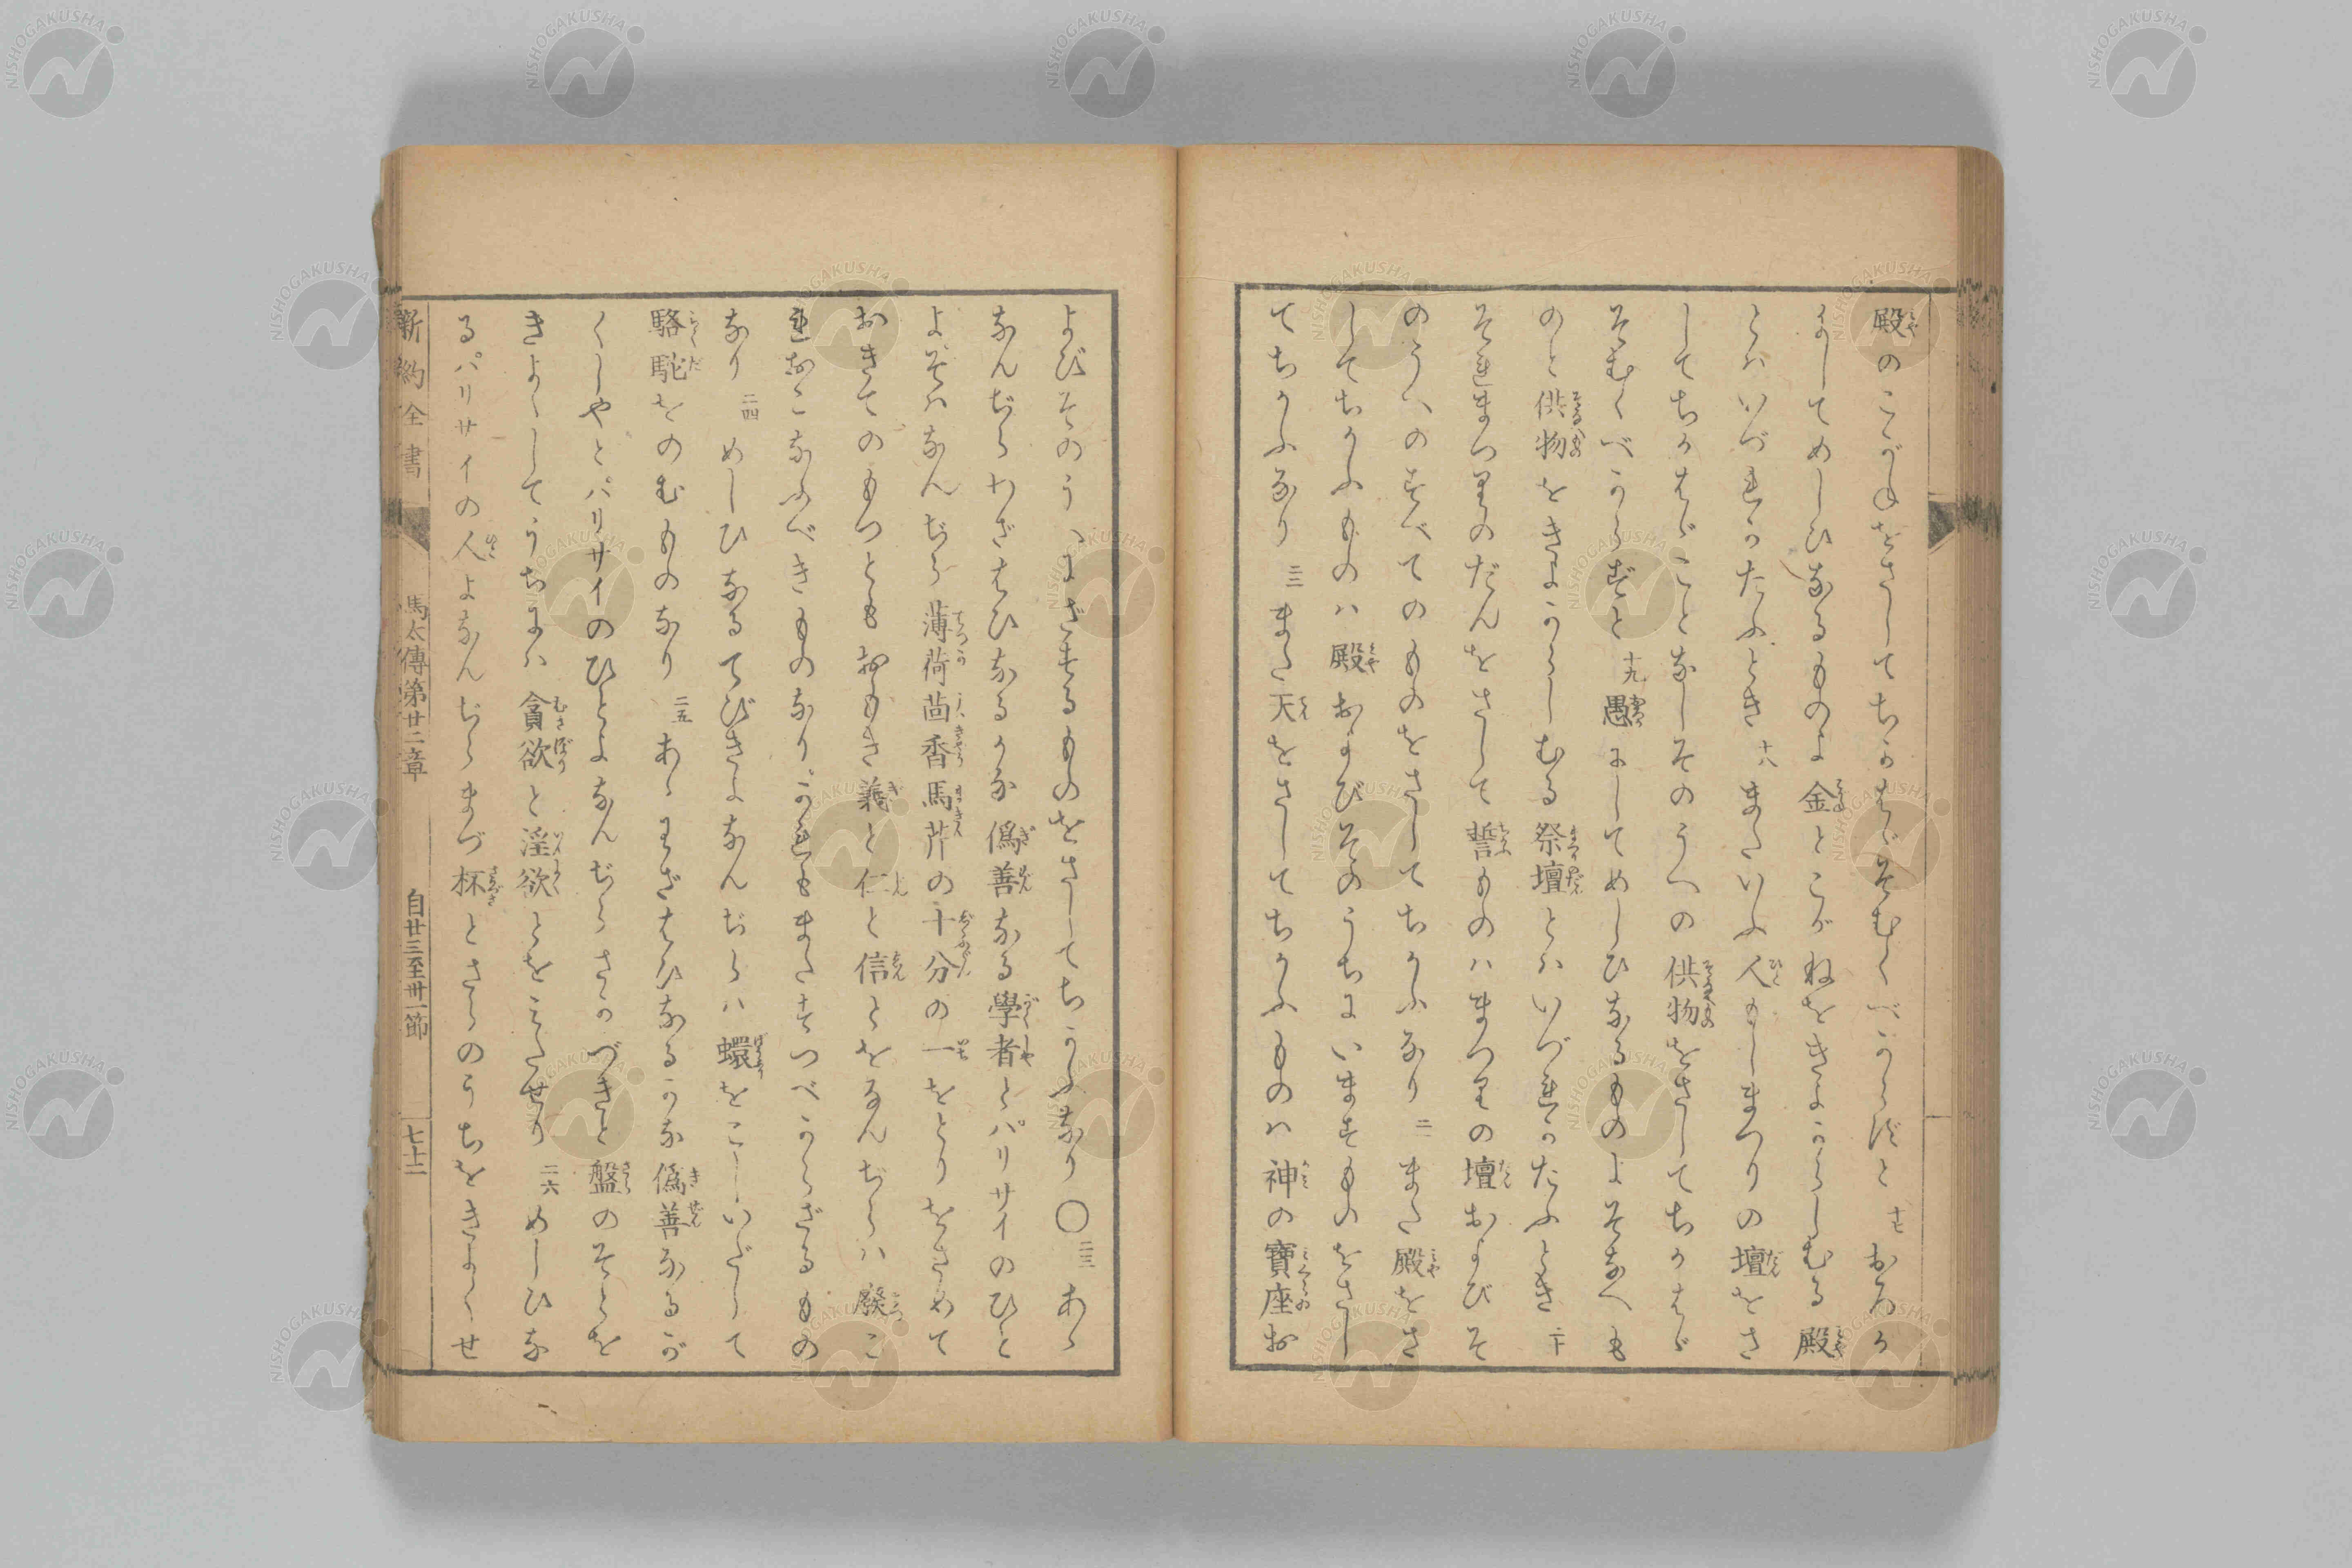 殿のこがねをさしてちかはゞそむくべからずと 十七 おろか
にしてめしひなるものよ金とこがねをきよからしむる殿
とハいづれかたふとき 十八 またいふ人もしまつりの壇をさ
してちかはゞことなしそのうへの供物をさしてちかはゞ
そむくべからずと 十九 愚にしてめしひなるものよそなへも
のと供物をきよからしむる祭壇とハいづれかたふとき 二十 
それまつりのだんをさして誓ものハまつりの壇およびそ
のうへのすべてのものをさしてちかふなり 二一 また殿をさ
してちかふものハ殿およびそのうちにいますものをさし
てちかふなり 二二 また天をさしてちかふものハ神の寶座お
よびそのうへにざするものをさしてちかふなり〇 二三 あゝ
なんぢらわざはひなるかな偽善なる學者とパリサイのひと
よそハなんぢら薄荷茴香馬芹の十分の一をとりをさめて
おきてのもつともおもき義と仁と信とをなんぢらハ廢こ
れおこなふべきものなりかれもまたすつべからざるもの
なり 二四 めしひなるてびきよなんぢらハ蠉をこしいだして
駱駝をのむものなり 二五 あゝわざはひなるかな偽善なるが
くしやとパリサイのひとよなんぢらさかづきと盤のそとを
きよくしてうちにハ貪欲と淫欲とをみたせり 二六 めしひな
るパリサイの人よなんぢらまづ杯とさらのうちをきよくせ
新約全書 馬太傳第廿三章 自廿三至卅一節 七十二
NISHOGAKUSHA